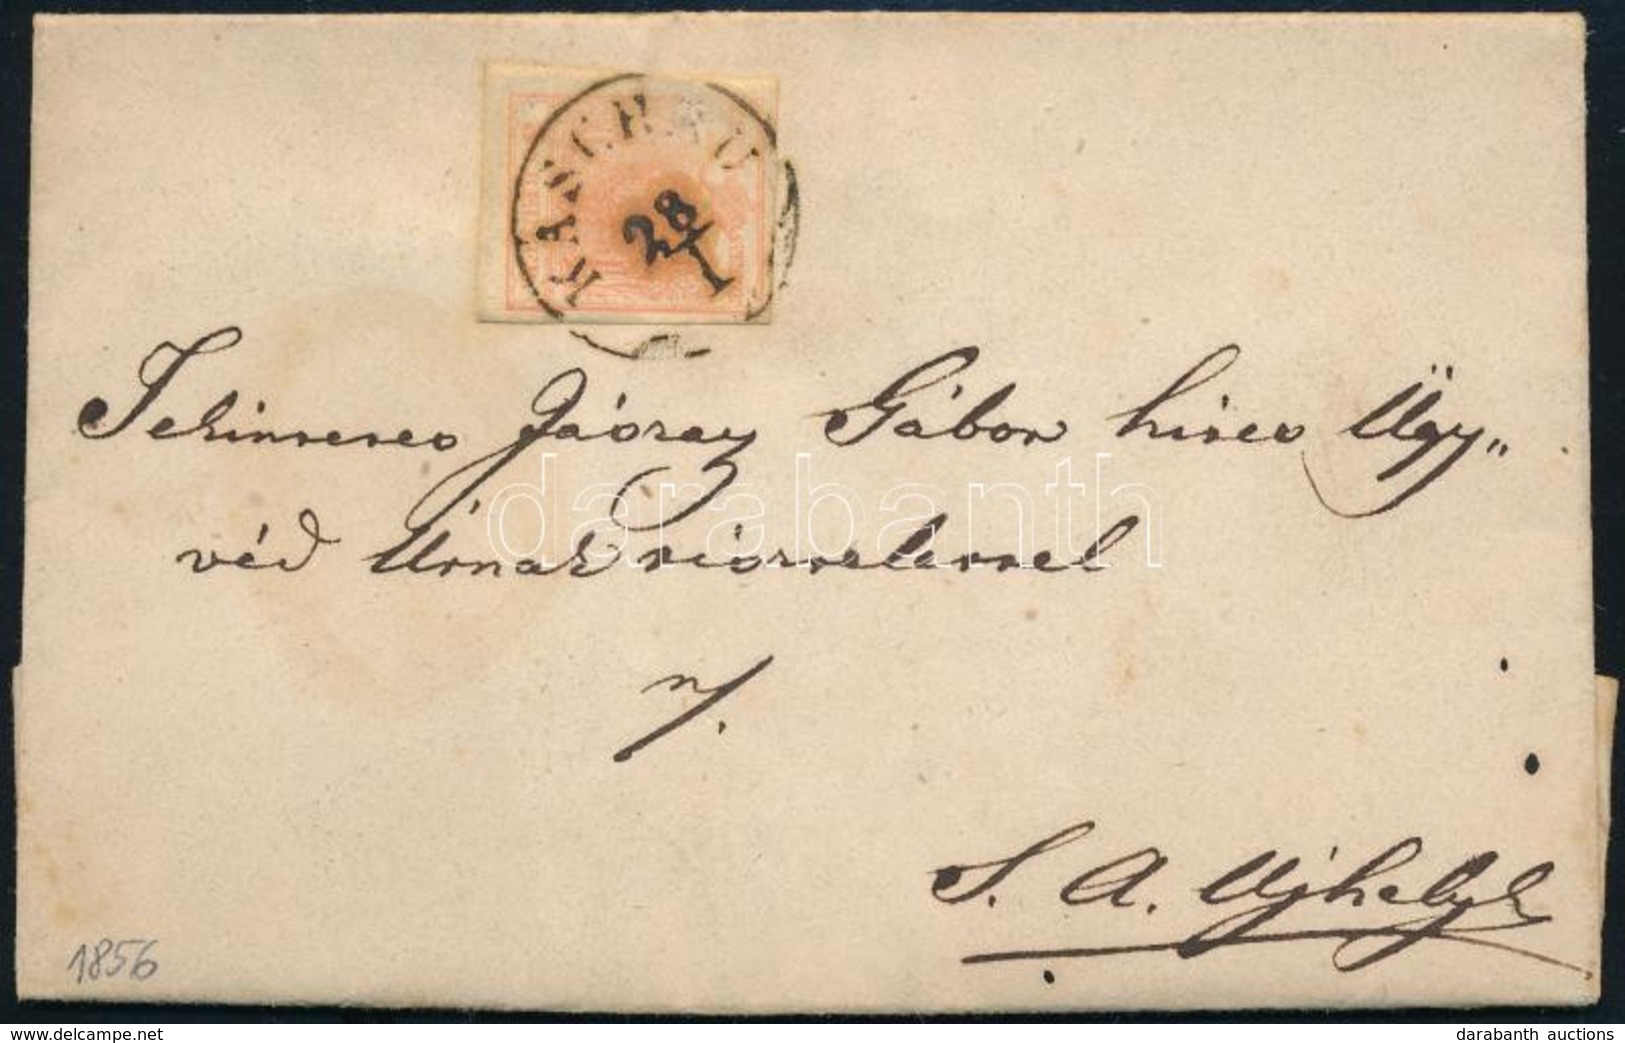 KASCHAU
28/I
Tekintetes Jászay Gábor hites Ügy„
véd Úrnak tisztelettel
n/.
S. A. Ujhelyt
1856
darabanth
www.delcampe.net
darabanth auctions